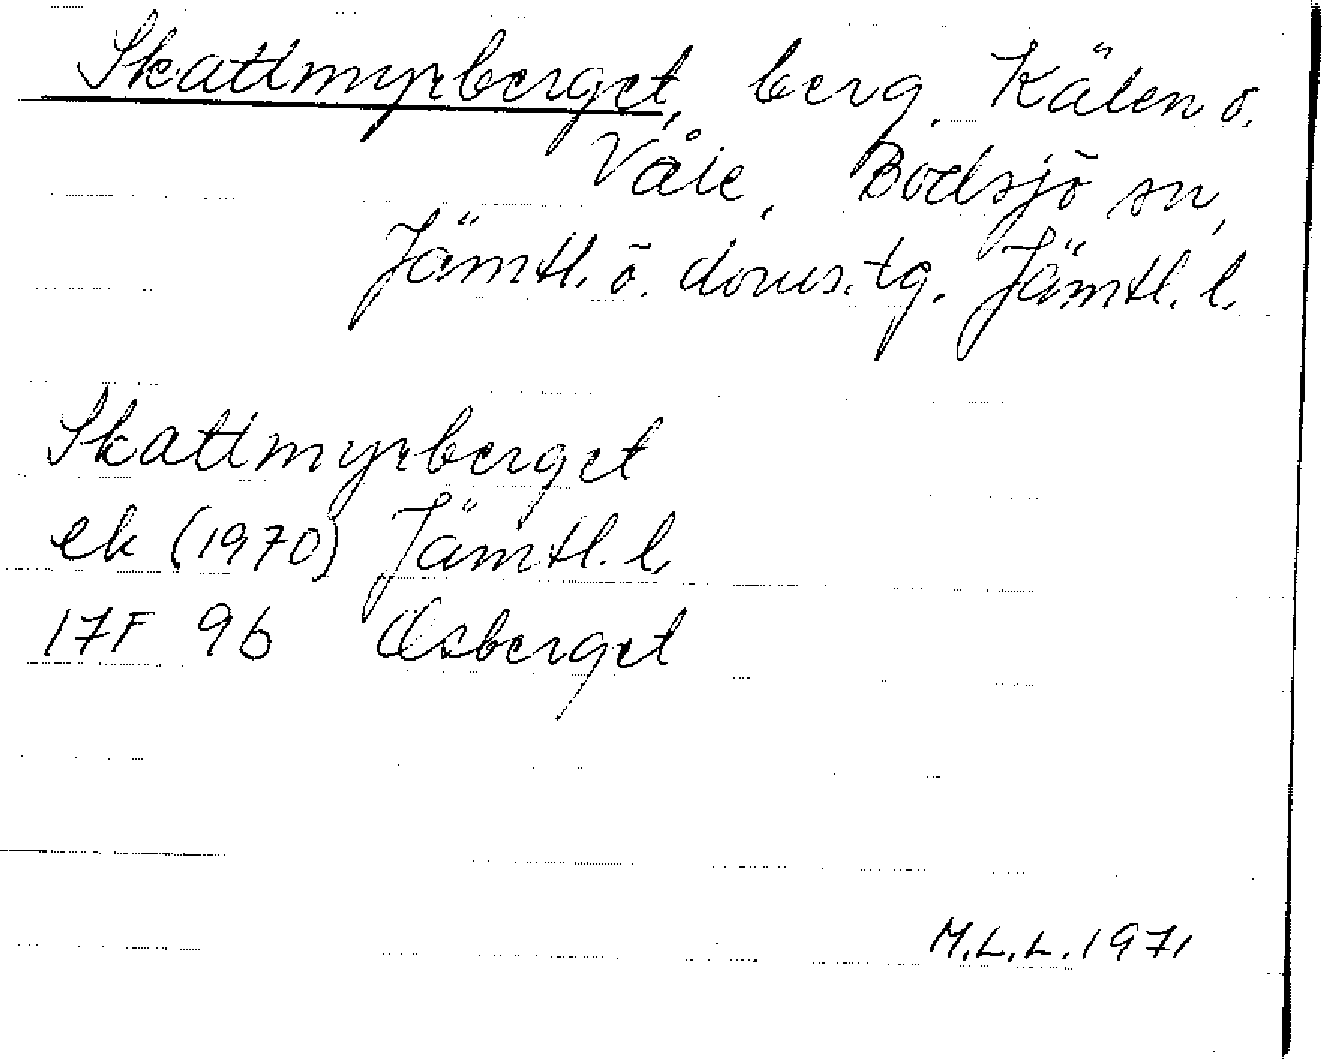 Skattmyrberget, berg, Kälen o.
Våle, Bodsjö sn,
Jämtl. ö. doms. tg. Jämtl. l.
Skattmyrberget
ek (1970) Jämtl. l.
17F 9b Åsberget
M.L.L. 1971